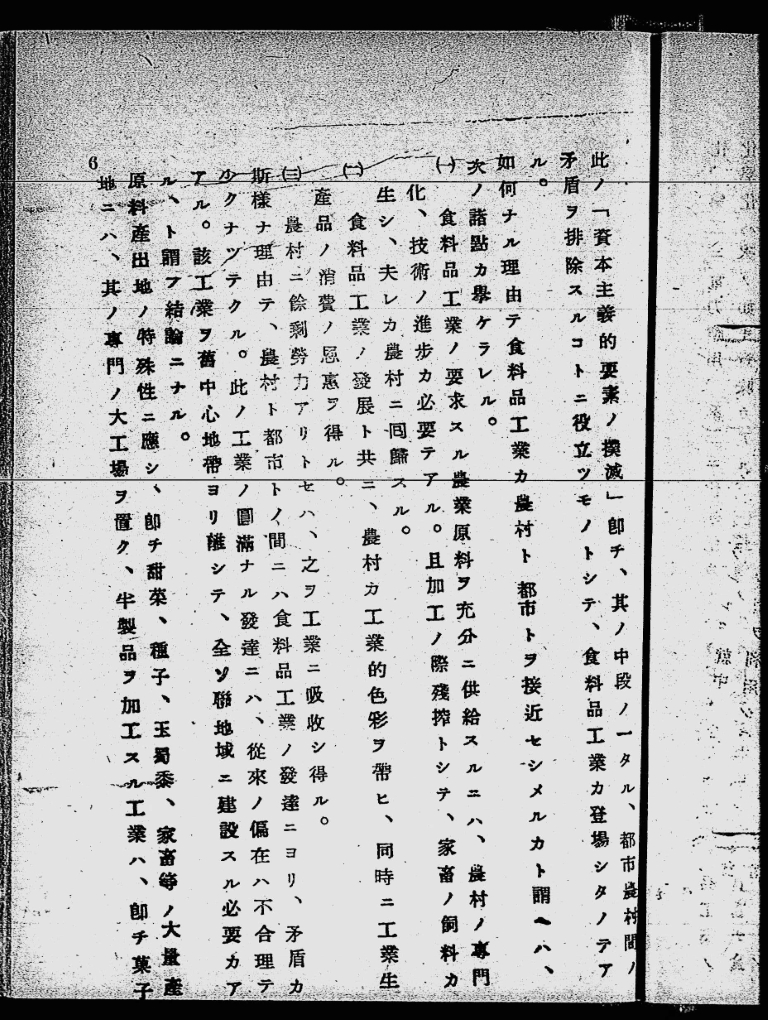 此ノ「資本主義的要素ノ撲滅」卽チ、其ノ中段ノ一タル、都市農村間ノ
矛盾ヲ排除スルコトニ役立ツモノトシテ、食料品工業カ登場シタノテア
ル。
如何ナル理由テ食料品工業カ農村ト都市トヲ接近セシメルカト謂ヘハ、
次ノ諸點カ擧ケラレル。
㈠ 食料品工業ノ要求スル農業原料ヲ充分ニ供給スルニハ、農村ノ專門
化、技術ノ進步カ必要テアル。且加工ノ際殘搾トシテ、家畜ノ飼料カ
生シ、夫レカ農村ニ囘歸スル。
㈡ 食料品工業ノ發展ト共ニ、農村カ工業的色彩ヲ帶ヒ、同時ニ工業生
產品ノ消費ノ恩惠ヲ得ル。
㈢ 農村ニ餘剩勞力アリトセハ、之ヲ工業ニ吸收シ得ル。
斯樣ナ理由テ、農村ト都市トノ間ニハ食料品工業ノ發達ニヨリ、矛盾カ
少クナツテクル。此ノ工業ノ圓滿ナル發達ニハ、從來ノ偏在ハ不合理テ
アル。該工業ヲ舊中心地帶ヨリ離シテ、全ソ聯地域ニ建設スル必要カア
ル、ト謂フ結論ニナル。
原料產出地ノ特殊性ニ應シ、卽チ甜菜、種子、玉蜀黍、家畜等ノ大量產
地ニハ、其ノ專門ノ大工場ヲ置ク、半製品ヲ加工スル工業ハ、卽チ菓子
6